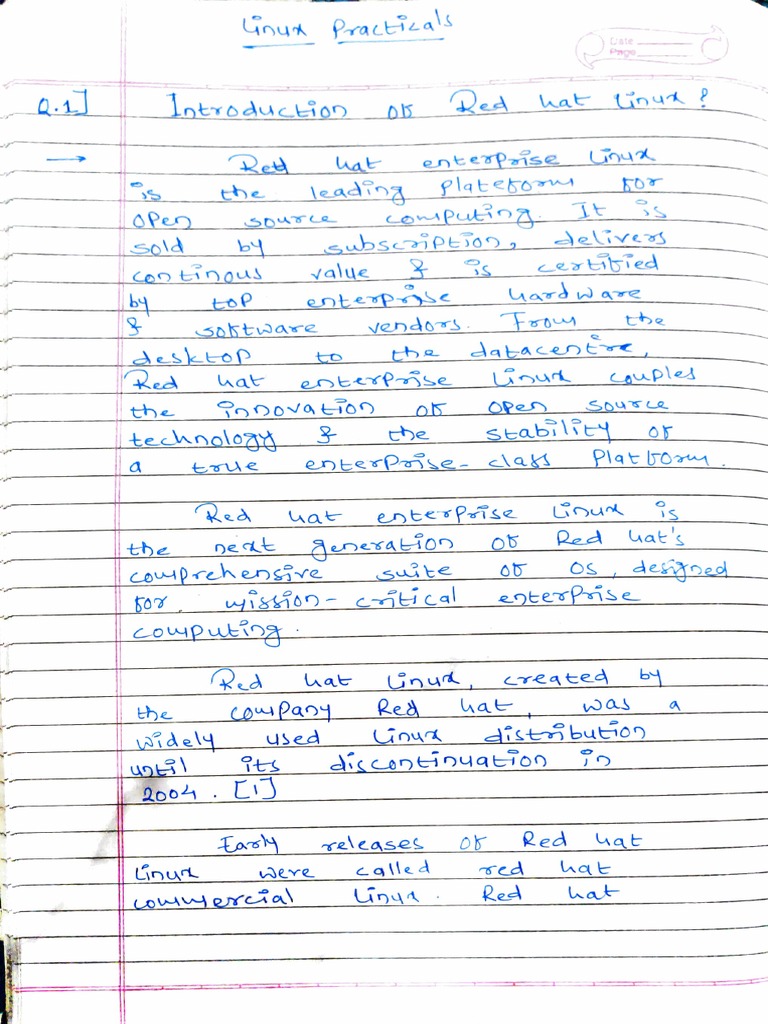 Linux Practicals
Date
Page
Q.1] Introduction of Red hat linux?
→ Red hat enterprise linux
is the leading Plateform for
open source computing. It is
sold by subscription, delivers
continous value & is certified
by top enterprise hardware
& software vendors. From the
desktop to the datacentre,
Red hat enterprise linux couples
the innovation of open source
technology & the stability of
a true enterprise-class Platform.
Red hat enterprise linux is
the next generation of Red hat's
comprehensive suite of os, designed
for mission-critical enterprise
computing.
Red hat linux, created by
the company Red hat, was a
widely used linux distribution
until its discontinuation in
2004. [1]
Early releases of Red hat
linux were called red hat
commercial linux. Red hat